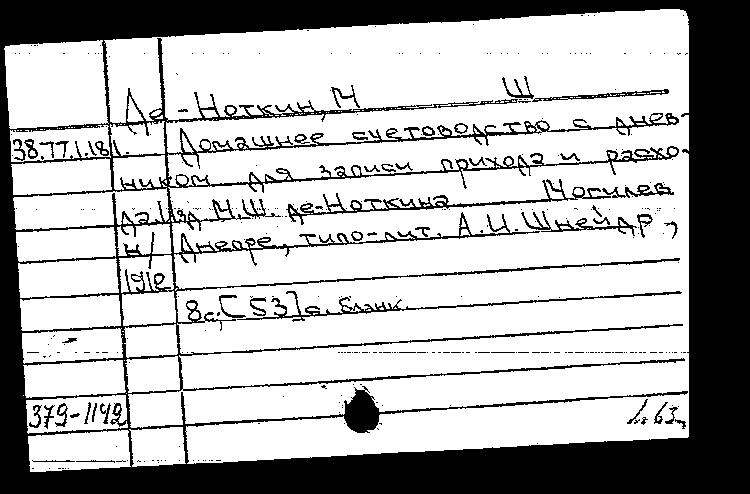 Де-Ноткин, М Ш
38.77.1.181. Домашнее счетоводство с днев-
ником для записи прихода и расхо-
да. Изд М.Ш. де-Ноткина Могилев
н/ Днепре, типо-лит. А.И. Шнейдр,
1912.
8с, [53]с. бланк.
379-1142